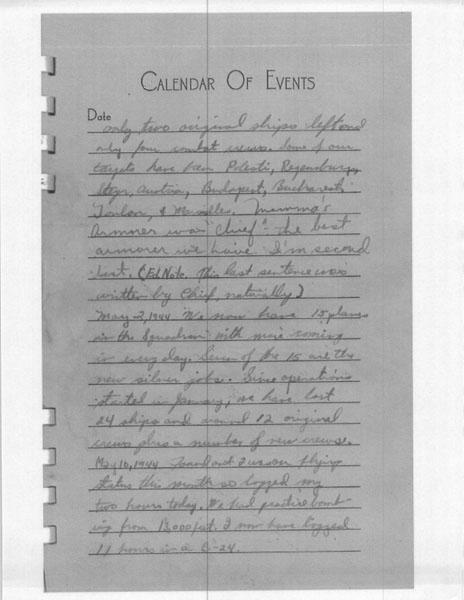 CALENDAR OF EVENTS
Date
only two original ships left and
only four combat crews. Some of our
targets have been Polesti, Regensburg,
Steyr, Austria, Budapest, Bucharest,
Toulon, & Marseilles.
Armorer was "Chief" - the best
armorer we have. I'm second
best. (Ed Note. This last sentence was
written by Chief, naturally)
May 2, 1944 We now have 15 planes
in the Squadron with more coming
in every day. Seven of the 15 are the
new silver jobs. Since operations
started in January, we have lost
24 ships and around 12 original
crews plus a number of new crews.
May 16, 1944 Found out I was on flying
status this month so logged my
two hours today. We had practice bomb-
ing from 13,000 feet. I now have logged
11 hours in a B-24.